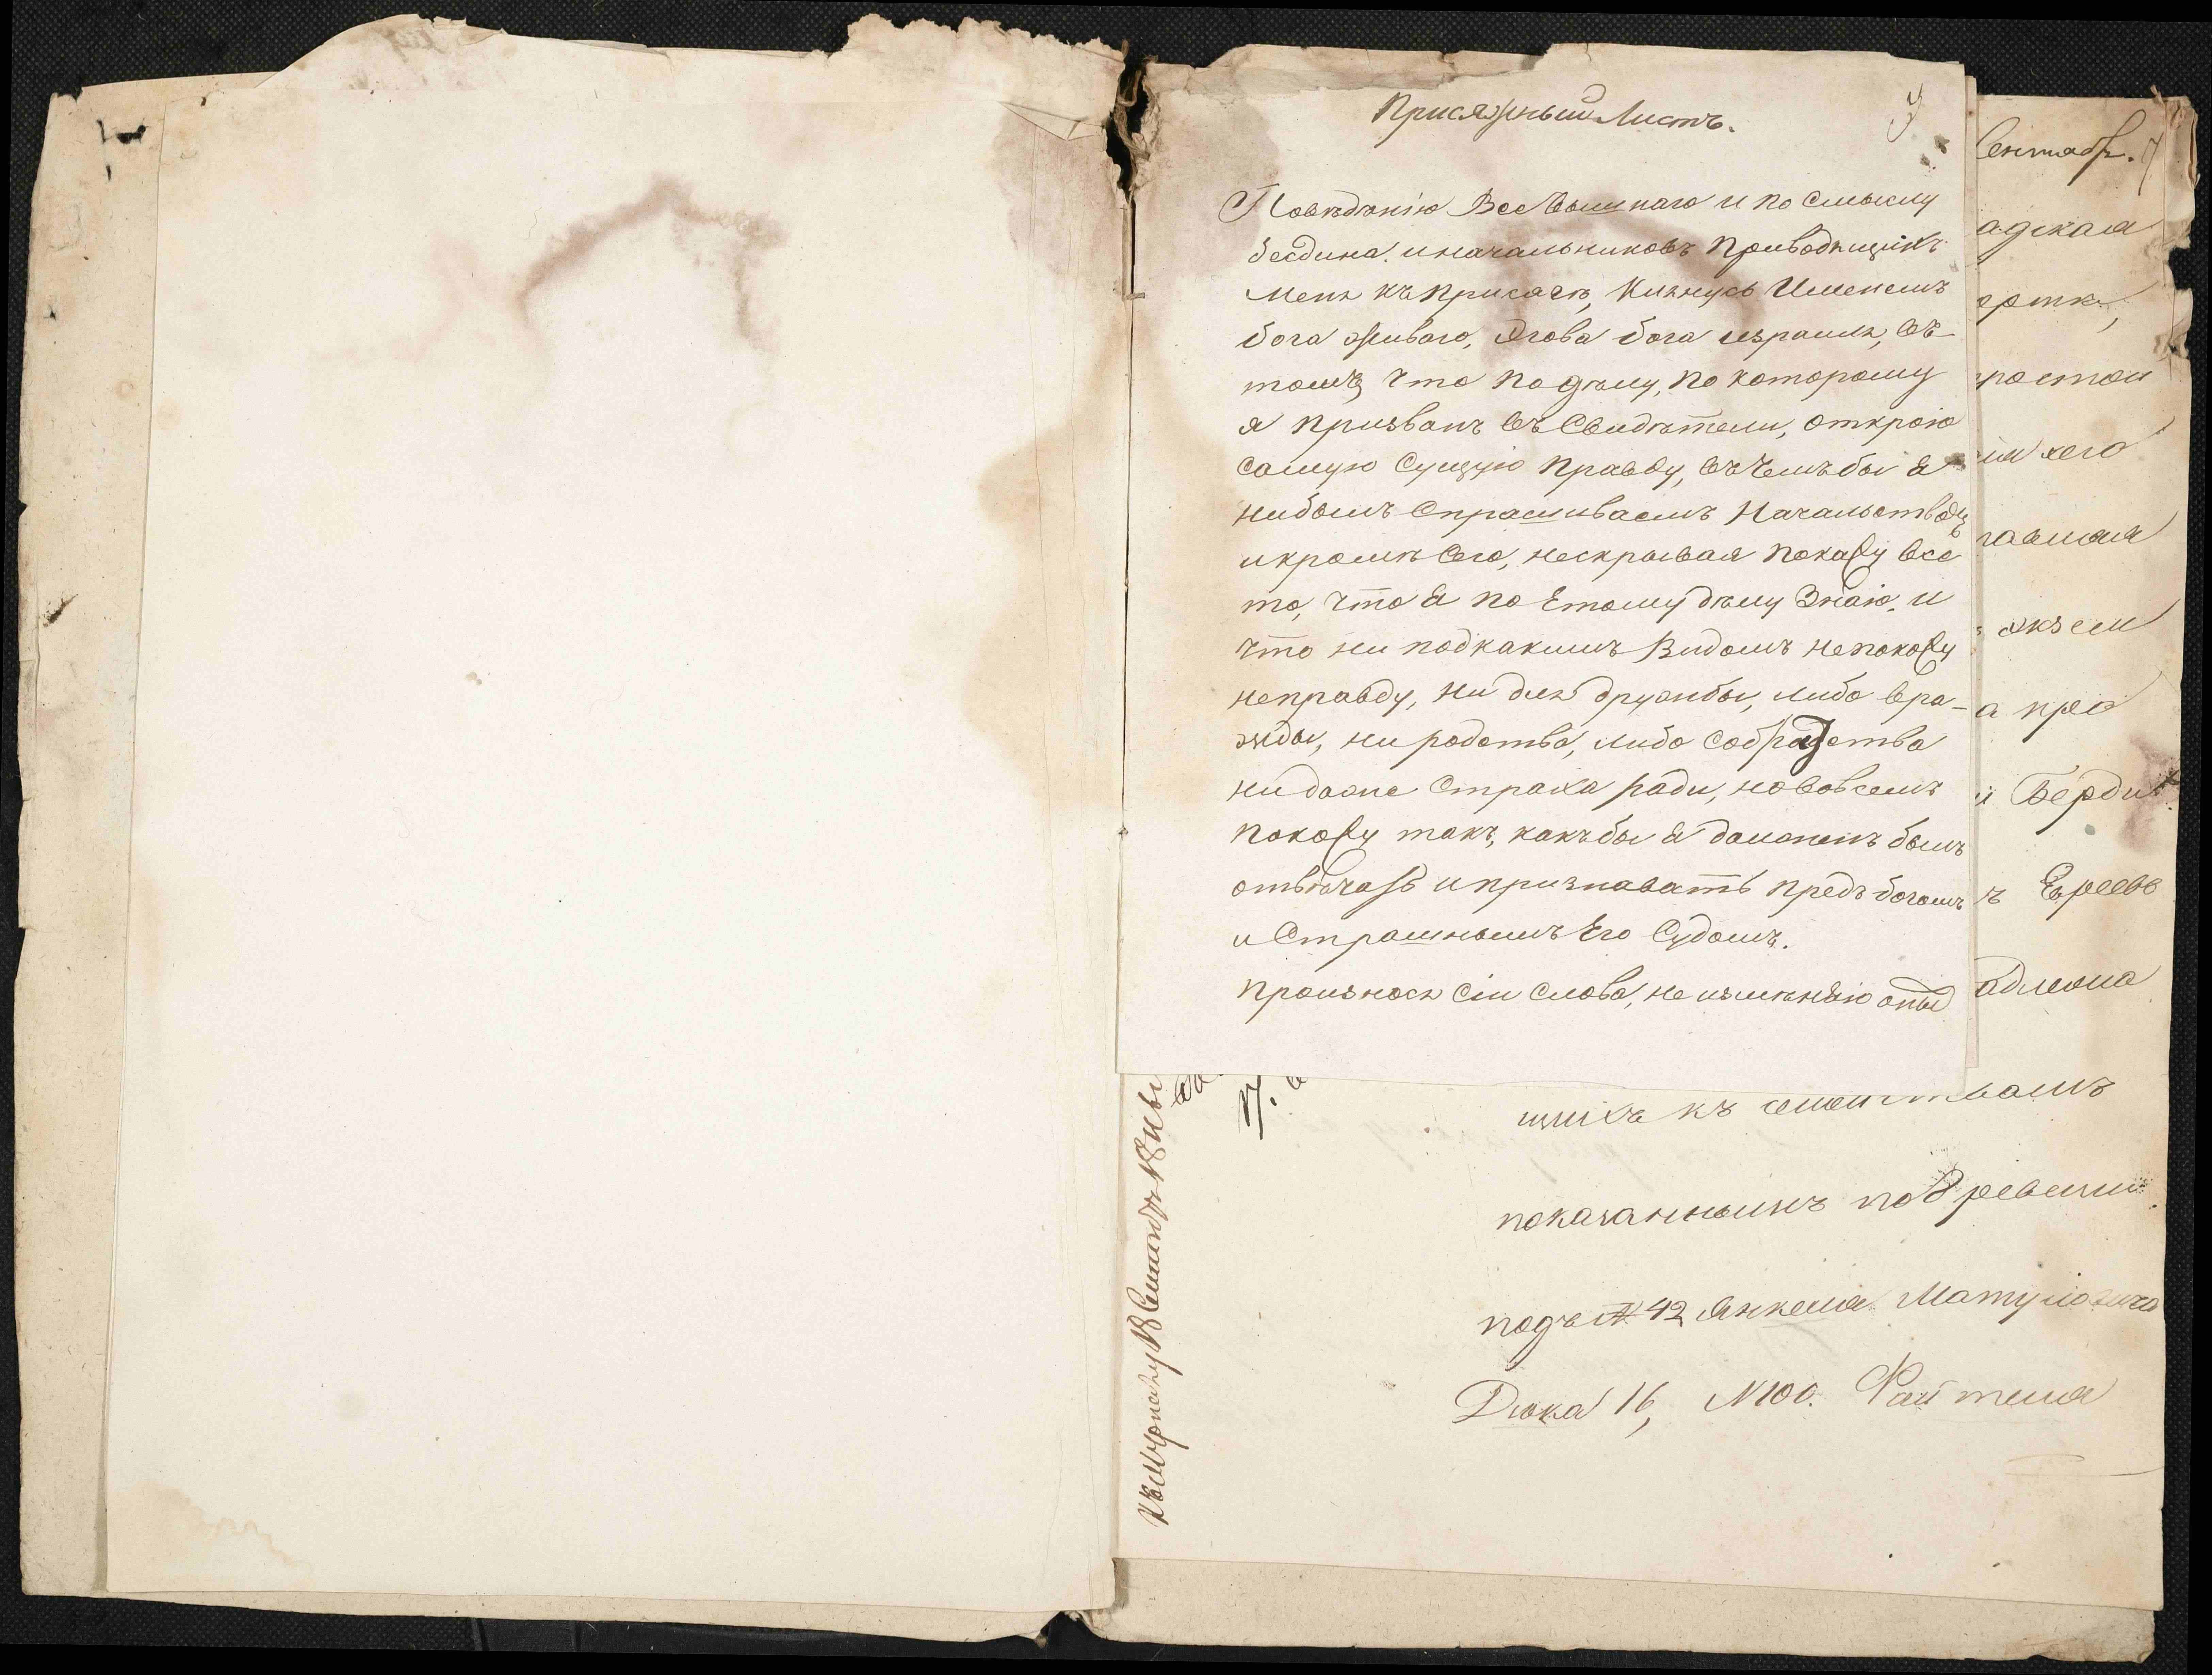 Присяжный Листъ.
Повѣдѣнію Всевышнаго и по Смыслу
бесдина и начальниковъ приводящихъ
Меня къ присягѣ, Клянусь Именемъ
бога живаго, Ягова бога израиля, въ
томъ, что по дѣлу, по которому
я призванъ въ Свидѣтели, открою
самую сущую правду, въ чемъ бы я
небылъ спрашиваемъ Начальствомъ
и кромѣ сего, нескрывая покажу все
то, что я по етому дѣлу Знаю. и
что ни подкакимъ Видомъ непокажу
неправду, ни для дружбы, либо вра-
жды, ни родства, либо собратства
ни даже страха ради, но вовсемъ
покажу такъ, какъ бы я долженъ былъ
отвѣчать и признавать предъ богомъ
и Страшнымъ Его Судомъ.
произнося сіи слова, не измѣняю оныя
Сентябр. 7
адская
простой
а пра
и Берди
ъ Евреевъ
щихъ къ
показаннымъ по 8 ревизіи
подъ № 42 Янкеля Матусовича
Дюка 16, № 100. Файтеля